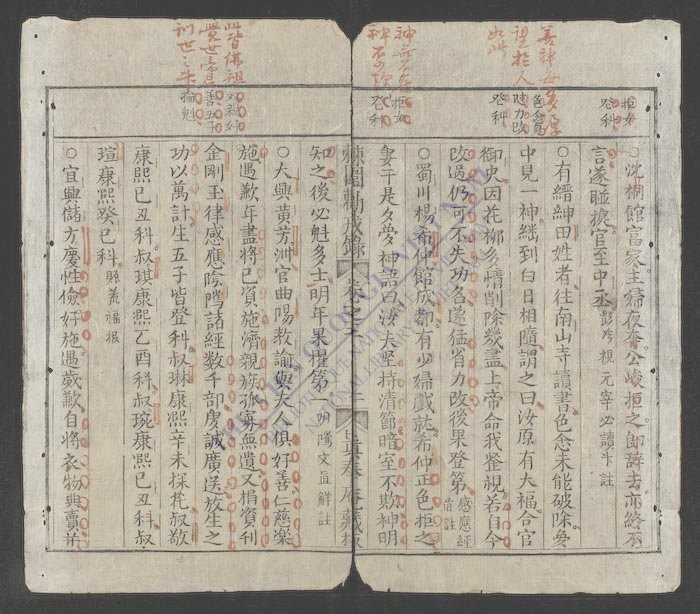 善神每多屬
望於人
如此
此皆佛祖
覺世
訓世
拒奔
登科
力改
登科
拒女
登科
好善五子
掄魁
○沈桐館富家主婦夜奔公峻拒之卽辭去亦終不
言遂聯捷官至中丞 元宰必讀書註
○有縉紳田姓者往南山寺讀書色念未能破除夢
中見一神繞到白日相隨謂之曰汝原有大福合官
御史因花柳多情削除幾盡上帝命我鑒視若自今
改過仍可不失功名遂猛省力改後果登第 感應經箋註
○蜀川楊希仲館成都有少婦戲就希仲正色拒之
妻于是夕夢神語曰汝夫堅持清節暗室不欺神明
棘闈勸戒錄 卷之 藏板
知之後必魁多士明年果擢第一 陰隲文直解註
○大興黃芳洲官曲陽教諭與夫人俱好善仁慈樂
施遇歉年盡將己資施濟親族孤寡無遺又捐資刊
金剛玉律感應陰隲諸經數千部虔誠廣送放生之
功以萬計生五子皆登科叔琳康熙辛未探花叔敬
康熙己丑科叔琪康熙乙酉科叔琬康熙己丑科叔
瑄康熙癸巳科 賑荒福報
○宜興儲方慶性儉好施遇歲歉自將衣物典賣并